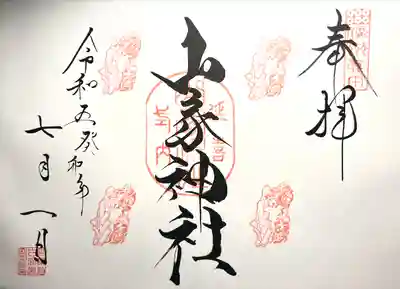 奉拝
延喜
山家神社
式内
令和五癸卯年
七月一日